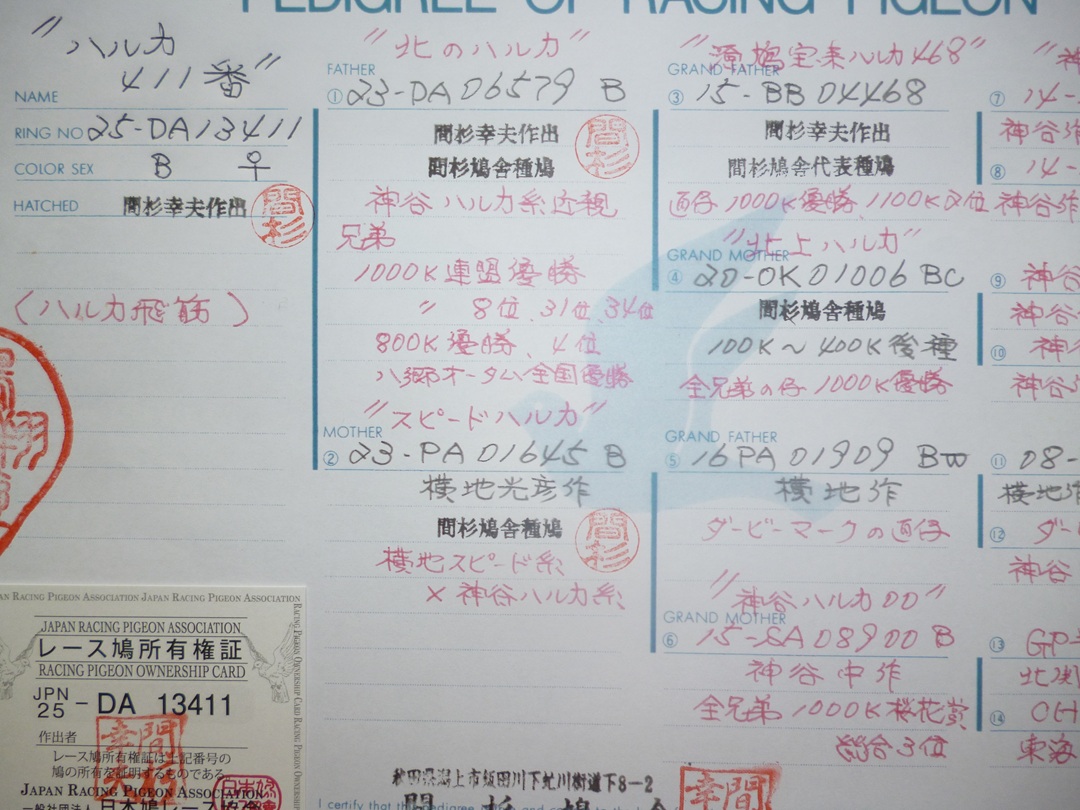 PEDIGREE OF RACING PIGEON
"ハルカ
411番"
NAME
RING NO 25-DA13411
COLOR SEX B ♀
HATCHED 間杉幸夫作出
間杉
(ハルカ飛筋)
"北のハルカ"
FATHER
① 23-DA06579 B
間杉幸夫作出
間杉鳩舎種鳩
間杉
神谷ハルカ系近親
兄弟
1000K連盟優勝
〃 8位、31位、34位
800K優勝、4位
八郷オータム全国優勝
"スピードハルカ"
MOTHER
② 23-PA01645 B
横地光彦作
間杉鳩舎種鳩
間杉
横地スピード系
×神谷ハルカ系
"源鳩宝来ハルカ468"
GRAND FATHER
③ 15-BB04468
間杉幸夫作出
間杉鳩舎代表種鳩
直仔1000K優勝、1100K2位
"北上ハルカ"
GRAND MOTHER
④ 20-OK01006 BC
間杉鳩舎種鳩
100K～400K後種
全兄弟の仔1000K優勝
GRAND FATHER
⑤ 16PA01909 BW
横地作
ダービーマークの直仔
"神谷ハルカ00"
GRAND MOTHER
⑥ 15-SA08900 B
神谷中作
全兄弟1000K桜花賞
総合3位
⑦ 14-
神谷作
⑧ 14-
神谷作
⑨ 神谷
神谷
⑩ 神谷
神谷
⑪ 08-
横地作
⑫ ダー
神谷
⑬ GP
北関
⑭ CH
東海
JAPAN RACING PIGEON ASSOCIATION
レース鳩所有権証
RACING PIGEON OWNERSHIP CARD
JPN
25 - DA 13411
作出者
レース鳩所有権証は上記番号の
鳩の所有を証明するものである
JAPAN RACING PIGEON ASSOCIATION
一般社団法人 日本鳩レース協会
秋田県潟上市飯田川下虻川街道下8-2
I certify that